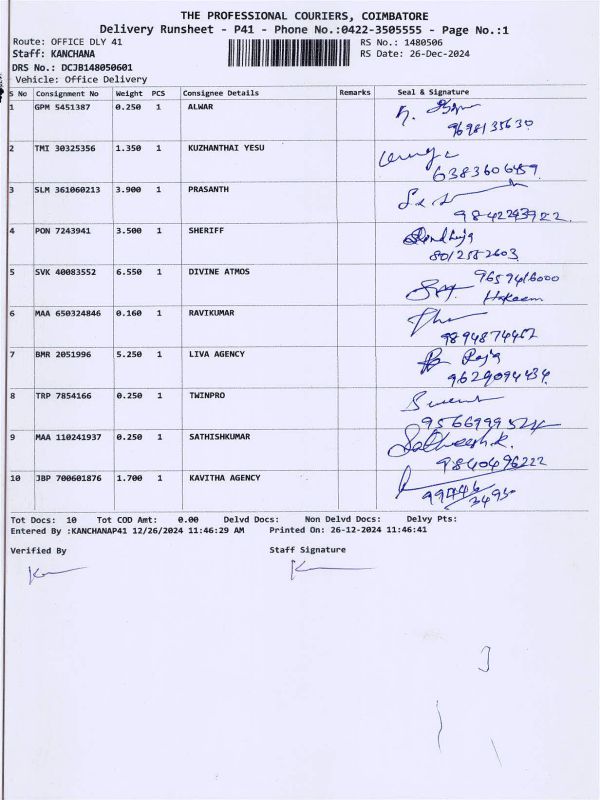 THE PROFESSIONAL COURIERS, COIMBATORE
Delivery Runsheet - P41 - Phone No.:0422-3505555 - Page No.:1
Route: OFFICE DLY 41 RS No.: 1480506
Staff: KANCHANA RS Date: 26-Dec-2024
DRS No.: DCJB148050601
Vehicle: Office Delivery
S No Consignment No Weight PCS Consignee Details Remarks Seal & Signature
1 GPM 5451387 0.250 1 ALWAR
9698135630
2 TMI 30325356 1.350 1 KUZHANTHAI YESU
6383606459
3 SLM 361060213 3.900 1 PRASANTH
9842293922
4 PON 7243941 3.500 1 SHERIFF
8012552603
5 SVK 40083552 6.550 1 DIVINE ATMOS 9659416000
Hakeem
6 MAA 650324846 0.160 1 RAVIKUMAR
9894874467
7 BMR 2051996 5.250 1 LIVA AGENCY Raja
9629094434
8 TRP 7854166 0.250 1 TWINPRO
9 MAA 110241937 0.250 1 SATHISHKUMAR Satheesh.k.
9840496222
10 JBP 700601876 1.700 1 KAVITHA AGENCY
99446
34950
Tot Docs: 10 Tot COD Amt: 0.00 Delvd Docs: Non Delvd Docs: Delvy Pts:
Entered By :KANCHANAP41 12/26/2024 11:46:29 AM Printed On: 26-12-2024 11:46:41
Verified By Staff Signature